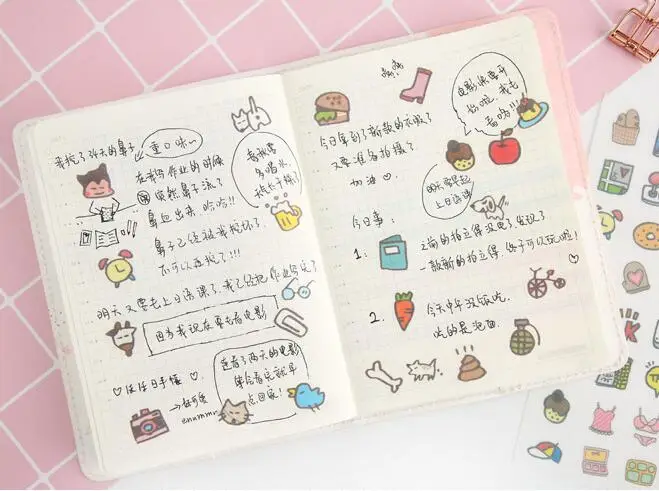 我抠了34天的鼻子
重口味~
在我写作业的时候
突然鼻子流了
鼻血出来，哈哈!!
鼻子已经被我抠坏了
不可以再抠了!!!
看我要
多喝水
明天又要去上日语课了，我已经把作业写完了
因为我现在要去看电影
连看了两天的电影
点回家!
♡任任日手帐
→好可爱
enummm
嘻嘻
今日拿到了新款的衣服了
又要准备拍摄了
加油 ♡
电影课要开
始啦，我去
看咯!!!
明天要早起
上日语课
今日事：
1：
之前的拍立得没电了，发现了
一款新的拍立得，终于可以玩啦！
2.
今天中午没饭吃，
吃的是泡面.